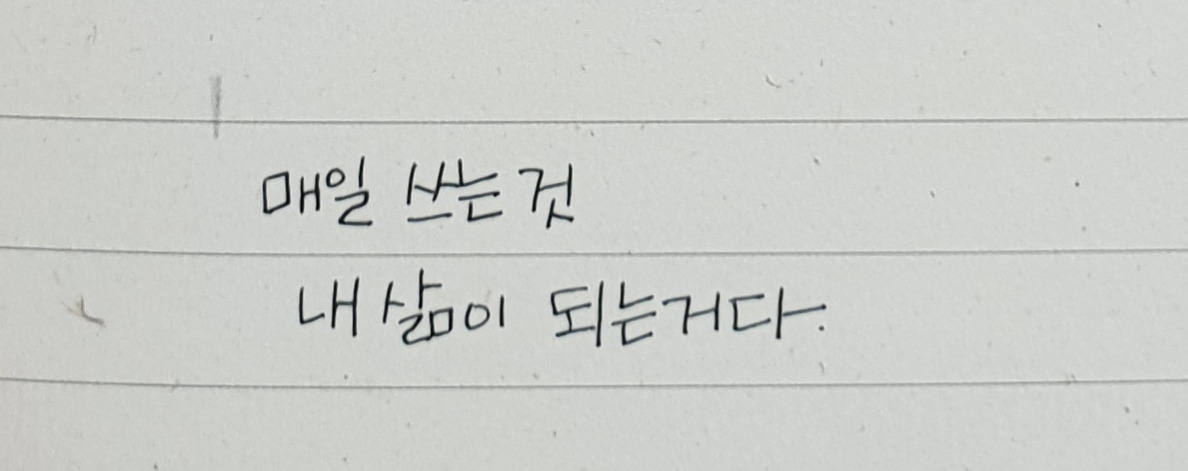 매일 쓰는것
내 삶이 되는거다.